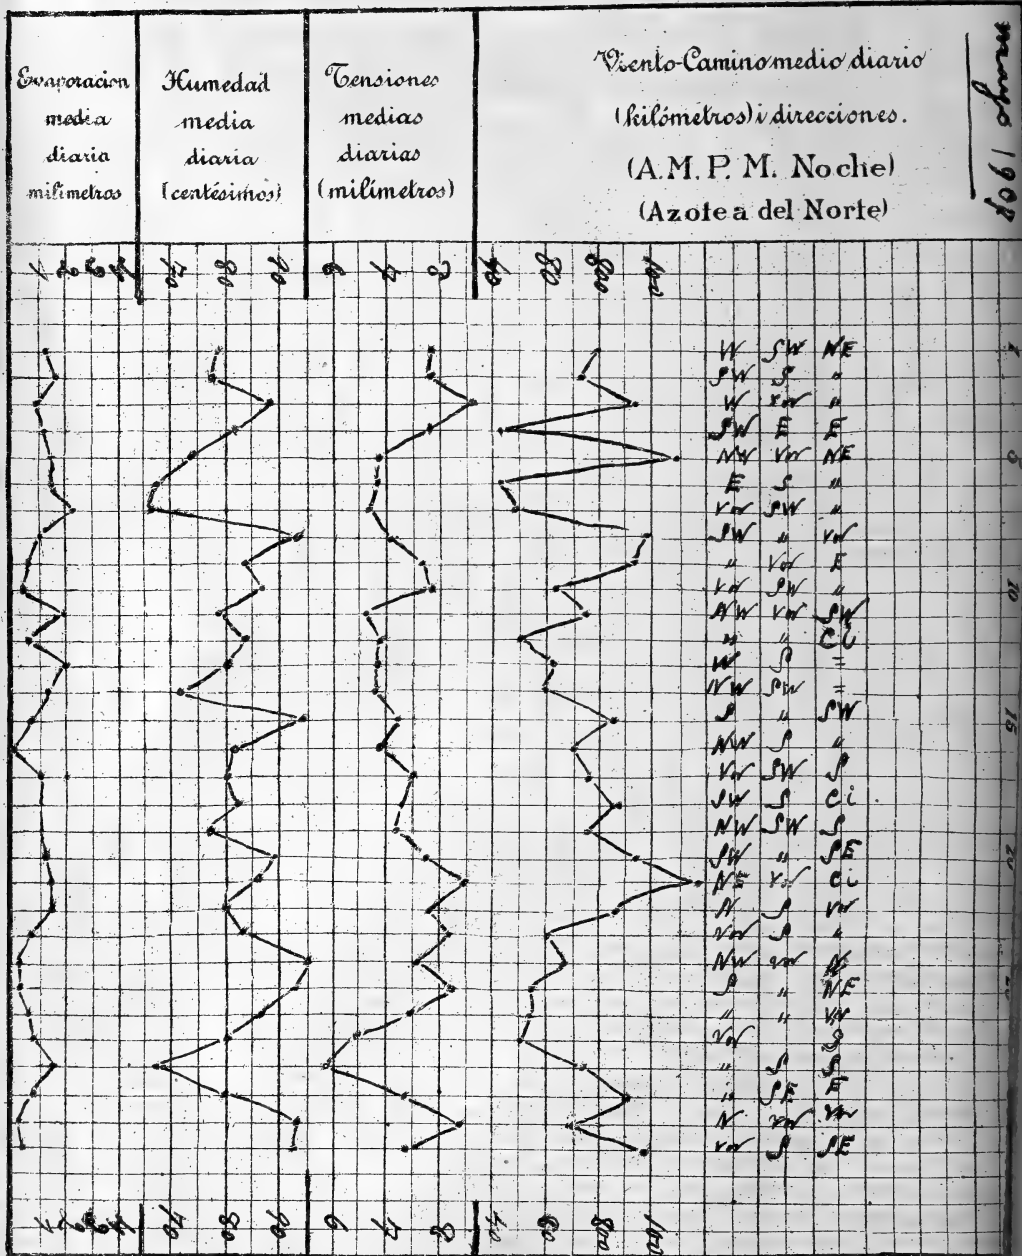 Evaporacion
media
diaria
milimetros
Humedad
media
diaria
(centésimos)
Tensiones
medias
diarias
(milimetros)
Viento-Camino medio diario
(kilómetros) i direcciones.
(A.M. P. M. Noche)
(Azotea del Norte)
1 2 3 4 70 80 90 6 7 8 40
1 W SW NE
SW S "
W var "
SW E E
5 NW var NE
E S "
var SW "
SW " var
" var E
10 var SW "
NW var SW
" "
W S "
NW SW "
15 S " SW
NW S "
var SW S
SW S Ci
NW SW S
20 SW " SE
NE var Ci
N S var
var S "
NW var N
S " NE
" " var
var
" S S
" SE E
N var var
var S SE
1 2 3 4 70 80 90 6 7 8 40